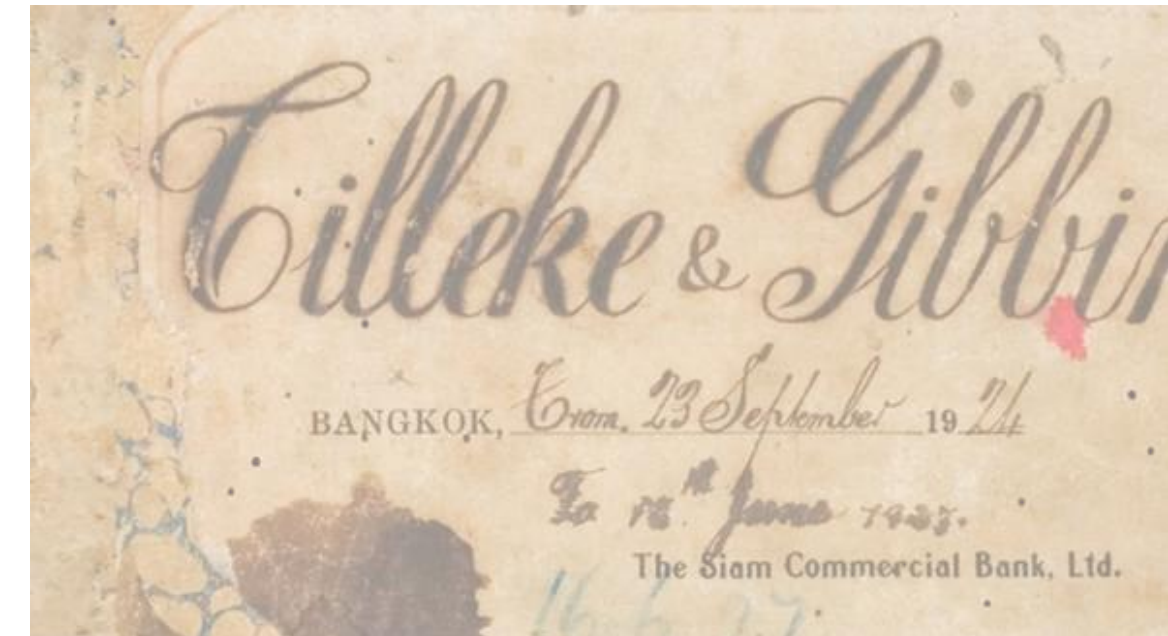 Tilleke & Gibbin
BANGKOK, From. 23 September 1924
To 16th June 1927.
The Siam Commercial Bank, Ltd.
16.6.27